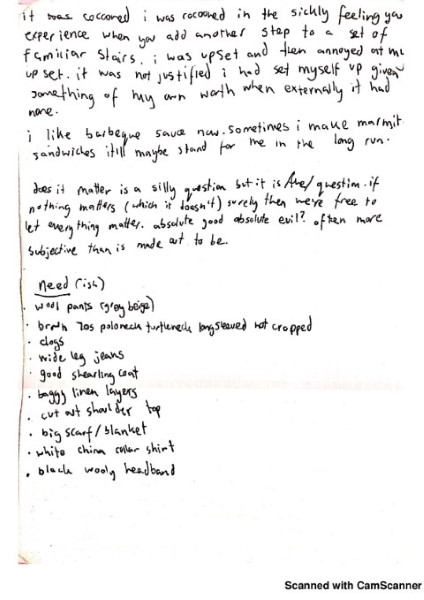 it was cocooned i was cocooned in the sickly feeling you
experience when you add another step to a set of
familiar stairs. i was upset and then annoyed at my
upset. it was not justified i had set myself up given
something of my own worth when externally it had
none.
i like barbeque sauce now. sometimes i make marmit
sandwiches itill maybe stand for me in the long run.
does it matter is a silly question but it is the/ question. if
nothing matters (which it doesn't) surely then we're free to
let everything matter. absolute good absolute evil? often more
subjective than is made out to be.
need (ish)
· wool pants (grey beige)
· brown 70s poloneck turtleneck longsleeved not cropped
· clogs
· wide leg jeans
· good shearling coat
· baggy linen layers
· cut out shoulder top
· big scarf/blanket
· white china collar shirt
· black wooly headband
Scanned with CamScanner